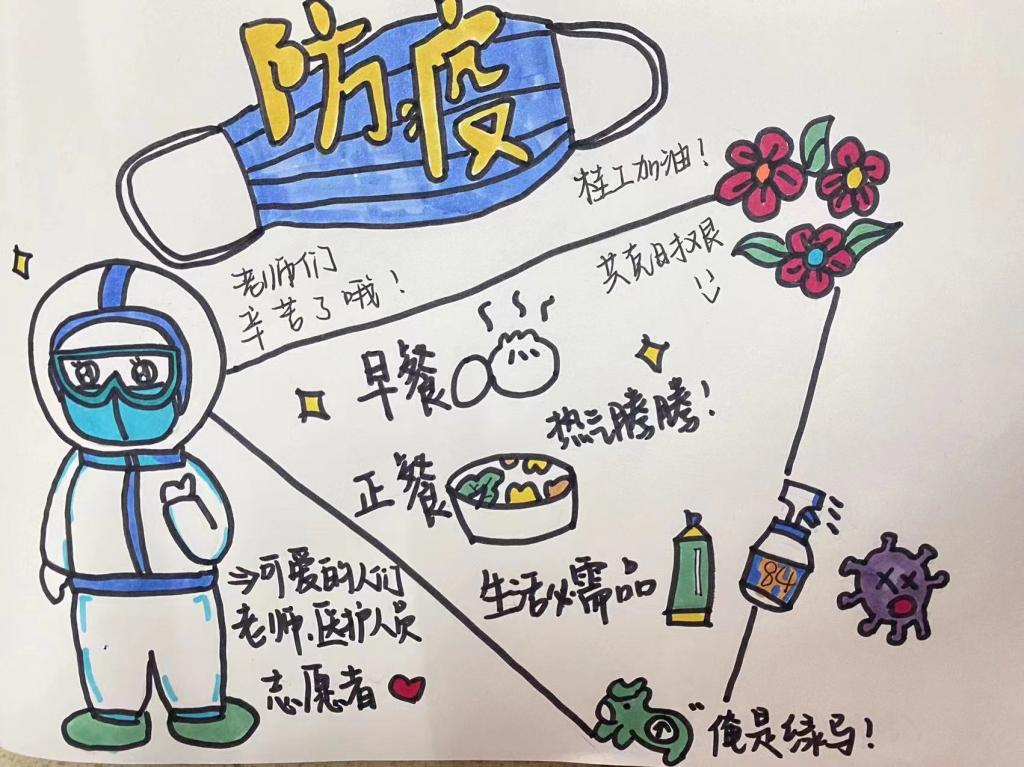 防疫
桂工加油！
老师们
辛苦了哦！
共克时艰
早餐
热气腾腾！
正餐
生活必需品
84
可爱的人们
老师、医护人员
志愿者
俺是绿马！